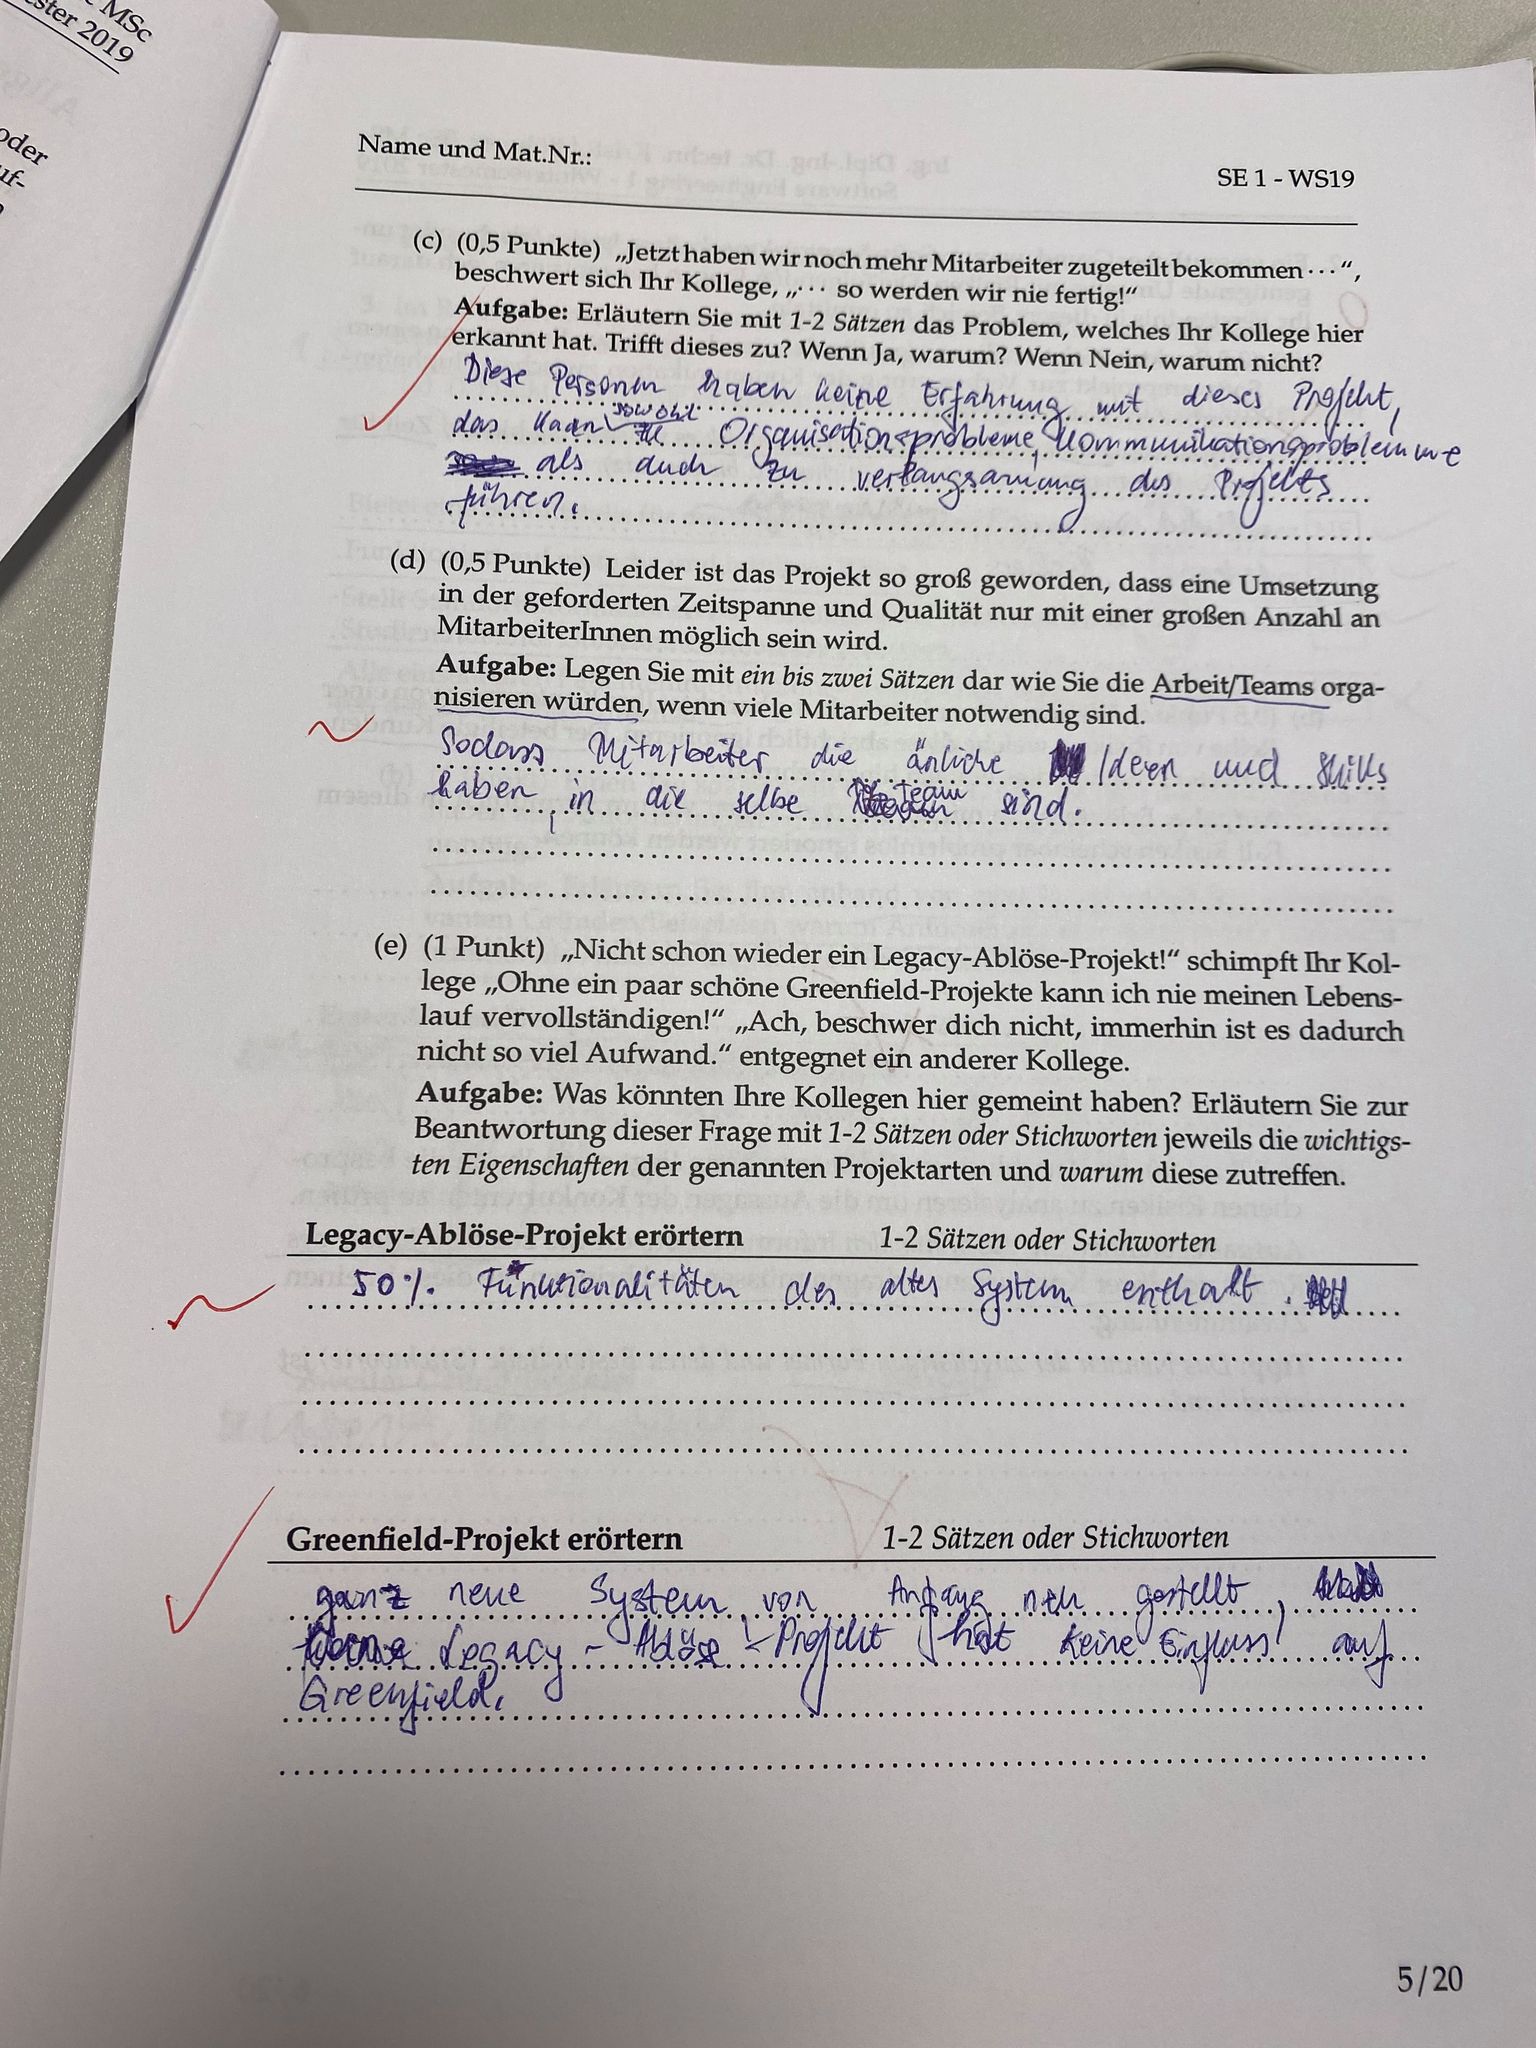 MSc
ester 2019
oder
uf-
Name und Mat.Nr.:
SE 1 - WS19
(c) (0,5 Punkte) „Jetzt haben wir noch mehr Mitarbeiter zugeteilt bekommen ··· “,
beschwert sich Ihr Kollege, „··· so werden wir nie fertig!“
Aufgabe: Erläutern Sie mit 1-2 Sätzen das Problem, welches Ihr Kollege hier
erkannt hat. Trifft dieses zu? Wenn Ja, warum? Wenn Nein, warum nicht?
Diese Personen haben keine Erfahrung mit dieses Projekt,
das kann sowohl Organisationsprobleme, Kommunikationsprobleme
als auch zu verlangsamung des Projekts
führen.
(d) (0,5 Punkte) Leider ist das Projekt so groß geworden, dass eine Umsetzung
in der geforderten Zeitspanne und Qualität nur mit einer großen Anzahl an
MitarbeiterInnen möglich sein wird.
Aufgabe: Legen Sie mit ein bis zwei Sätzen dar wie Sie die Arbeit/Teams orga-
nisieren würden, wenn viele Mitarbeiter notwendig sind.
Sodass Mitarbeiter die änliche Ideen und Skills
haben, in die selbe Team sind.
(e) (1 Punkt) „Nicht schon wieder ein Legacy-Ablöse-Projekt!“ schimpft Ihr Kol-
lege „Ohne ein paar schöne Greenfield-Projekte kann ich nie meinen Lebens-
lauf vervollständigen!“ „Ach, beschwer dich nicht, immerhin ist es dadurch
nicht so viel Aufwand.“ entgegnet ein anderer Kollege.
Aufgabe: Was könnten Ihre Kollegen hier gemeint haben? Erläutern Sie zur
Beantwortung dieser Frage mit 1-2 Sätzen oder Stichworten jeweils die wichtigs-
ten Eigenschaften der genannten Projektarten und warum diese zutreffen.
Legacy-Ablöse-Projekt erörtern 1-2 Sätzen oder Stichworten
50% Funktionalitäten des altes System enthalt.
Greenfield-Projekt erörtern 1-2 Sätzen oder Stichworten
ganz neue System von Anfang gestellt,
Legacy - Ablöse - Projekt hat keine Einfluss auf
Greenfield.
5/20